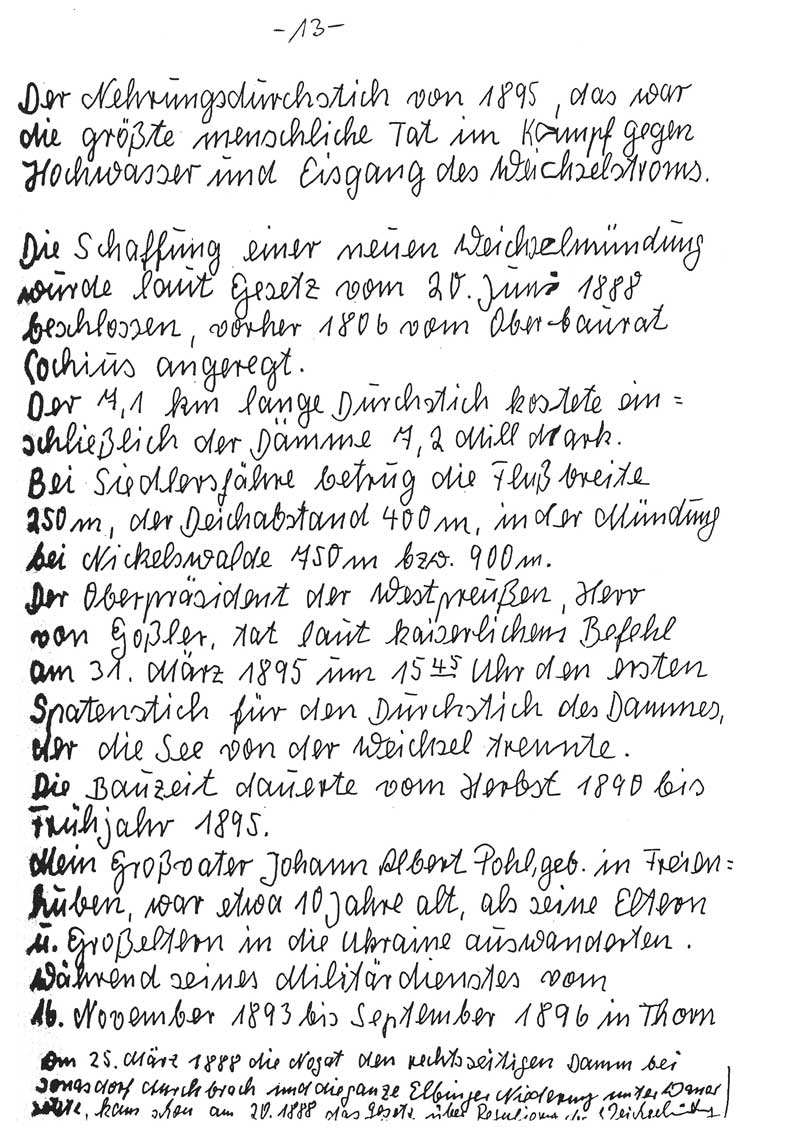 -13-
Der Nehrungsdurchstich von 1895, das war
die größte menschliche Tat im Kampf gegen
Hochwasser und Eisgang des Weichselstroms.
Die Schaffung einer neuen Weichselmündung
wurde laut Gesetz vom 20. Juni 1888
beschlossen, vorher 1806 vom Ober-baurat
Cochius angeregt.
Der 7,1 km lange Durchstich kostete ein=
schließlich der Dämme 7,2 Mill Mark.
Bei Siedlersfähre betrug die Flußbreite
250m, der Deichabstand 400m, in der Mündung
bei Nickelswalde 750m bzw. 900m.
Der Oberpräsident der Westpreußen, Herr
von Goßler, tat laut kaiserlichem Befehl
am 31. März 1895 um 15 45 Uhr den ersten
Spatenstich für den Durchstich des Dammes,
der die See von der Weichsel trennte.
Die Bauzeit dauerte vom Herbst 1890 bis
Frühjahr 1895.
Mein Großvater Johann Albert Pohl, geb. in Freien=
huben, war etwa 10 Jahre alt, als seine Eltern
u. Großeltern in die Ukraine auswanderten.
Während seines Militärdienstes vom
16. November 1893 bis September 1896 in Thorn
Am 25. März 1888 die Nogat den rechtsseitigen Damm bei
Jonasdorf durchbrach und die ganze Elbinger Niederung unter Wasser
setzte, kam schon am 20. 1888 das Gesetz über